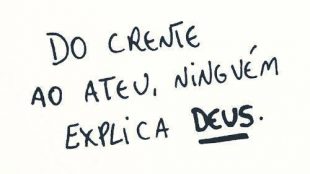 DO CRENTE
AO ATEU, NINGUÉM
EXPLICA DEUS.